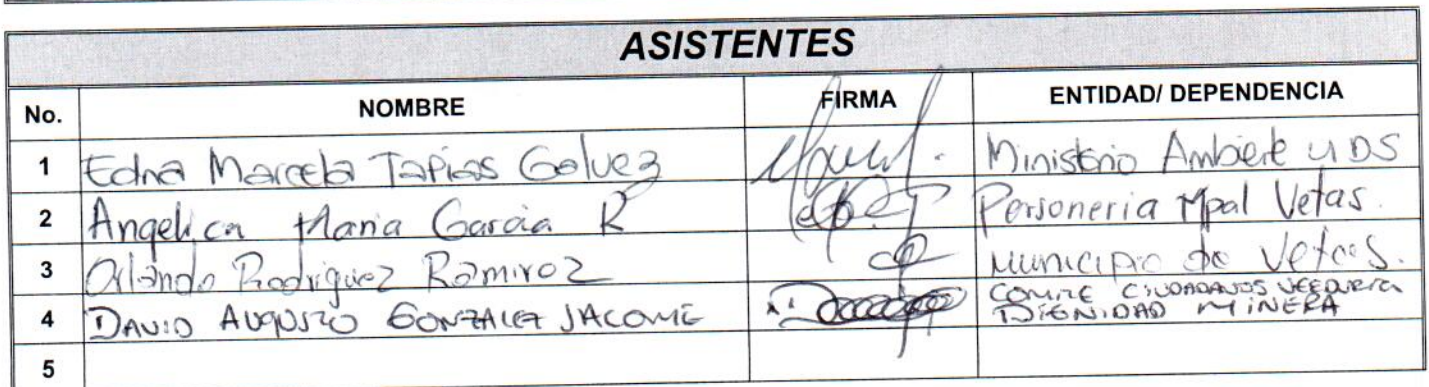 ASISTENTES
No. NOMBRE FIRMA ENTIDAD/ DEPENDENCIA
1 Edna Marcela Tapias Galvez Ministerio Ambiente y DS
2 Angelica Maria Garcia R Personeria Mpal Vetas.
3 Orlando Rodriguez Ramirez Municipio de Vetas.
4 DAVID AUGUSTO GONZALEZ JACOME COMITE CIUDADANOS VEEDURIA
DIGNIDAD MINERA
5